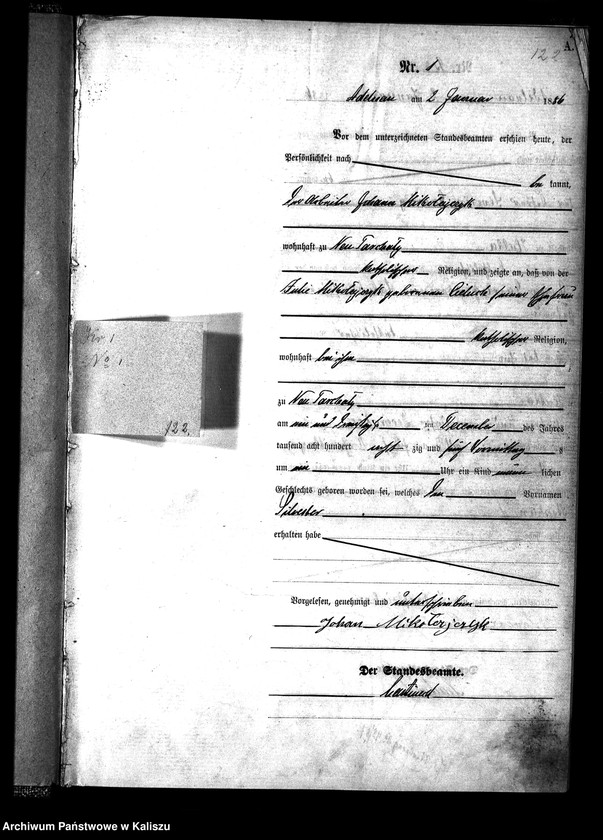 122
A.
Nr. 1
Adelnau am 2 Januar 1886
Vor dem unterzeichneten Standesbeamten erschien heute, der
Persönlichkeit nach
be kannt,
Der Arbeiter Johann Mikołajczyk
wohnhaft zu Neu Tarchaly
katholischer Religion, und zeigte an, daß von der
Julie Mikołajczyk geborenen seiner Ehefrau
katholischer Religion,
wohnhaft bei ihm
zu Neu Tarchaly
am ein und dreißigsten December des Jahres
tausend acht hundert acht zig und fünf Vormittag s
um ein Uhr ein Kind männ lichen
Geschlechts geboren worden sei, welches den Vornamen
Silvester
erhalten habe
Vorgelesen, genehmigt und unterschrieben
Johan Mikołajczyk
Der Standesbeamte.
Nr 1
No 1
122.
Archiwum Państwowe w Kaliszu